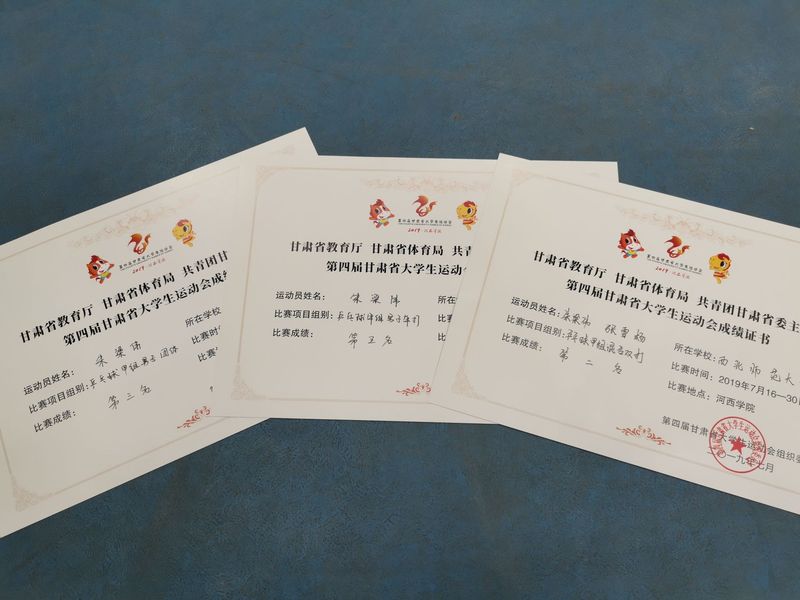 2019·河西学院
甘肃省教育厅 甘肃省体育局 共青团甘
第四届甘肃省大学生运动会成
运动员姓名: 朱梁伟
所在学
比赛项目组别: 乒乓球甲组男子团体
比赛时
比赛成绩: 第三名
第四届甘肃省大学生运动会
2019·河西学院
甘肃省教育厅 甘肃省体育局 共青
第四届甘肃省大学生运动会
运动员姓名: 朱梁伟
所在
比赛项目组别: 乒乓球甲组男子单打
比赛
比赛成绩: 第五名
比
2019·河西学院
甘肃省教育厅 甘肃省体育局 共青团甘肃省委主
第四届甘肃省大学生运动会成绩证书
运动员姓名: 朱梁伟
所在学校: 西北师范大
比赛项目组别: 乒乓球甲组混合双打
比赛时间: 2019年7月16—30日
比赛成绩: 第二名
比赛地点: 河西学院
第四届甘肃省大学生运动会组织委
二〇一九年七月